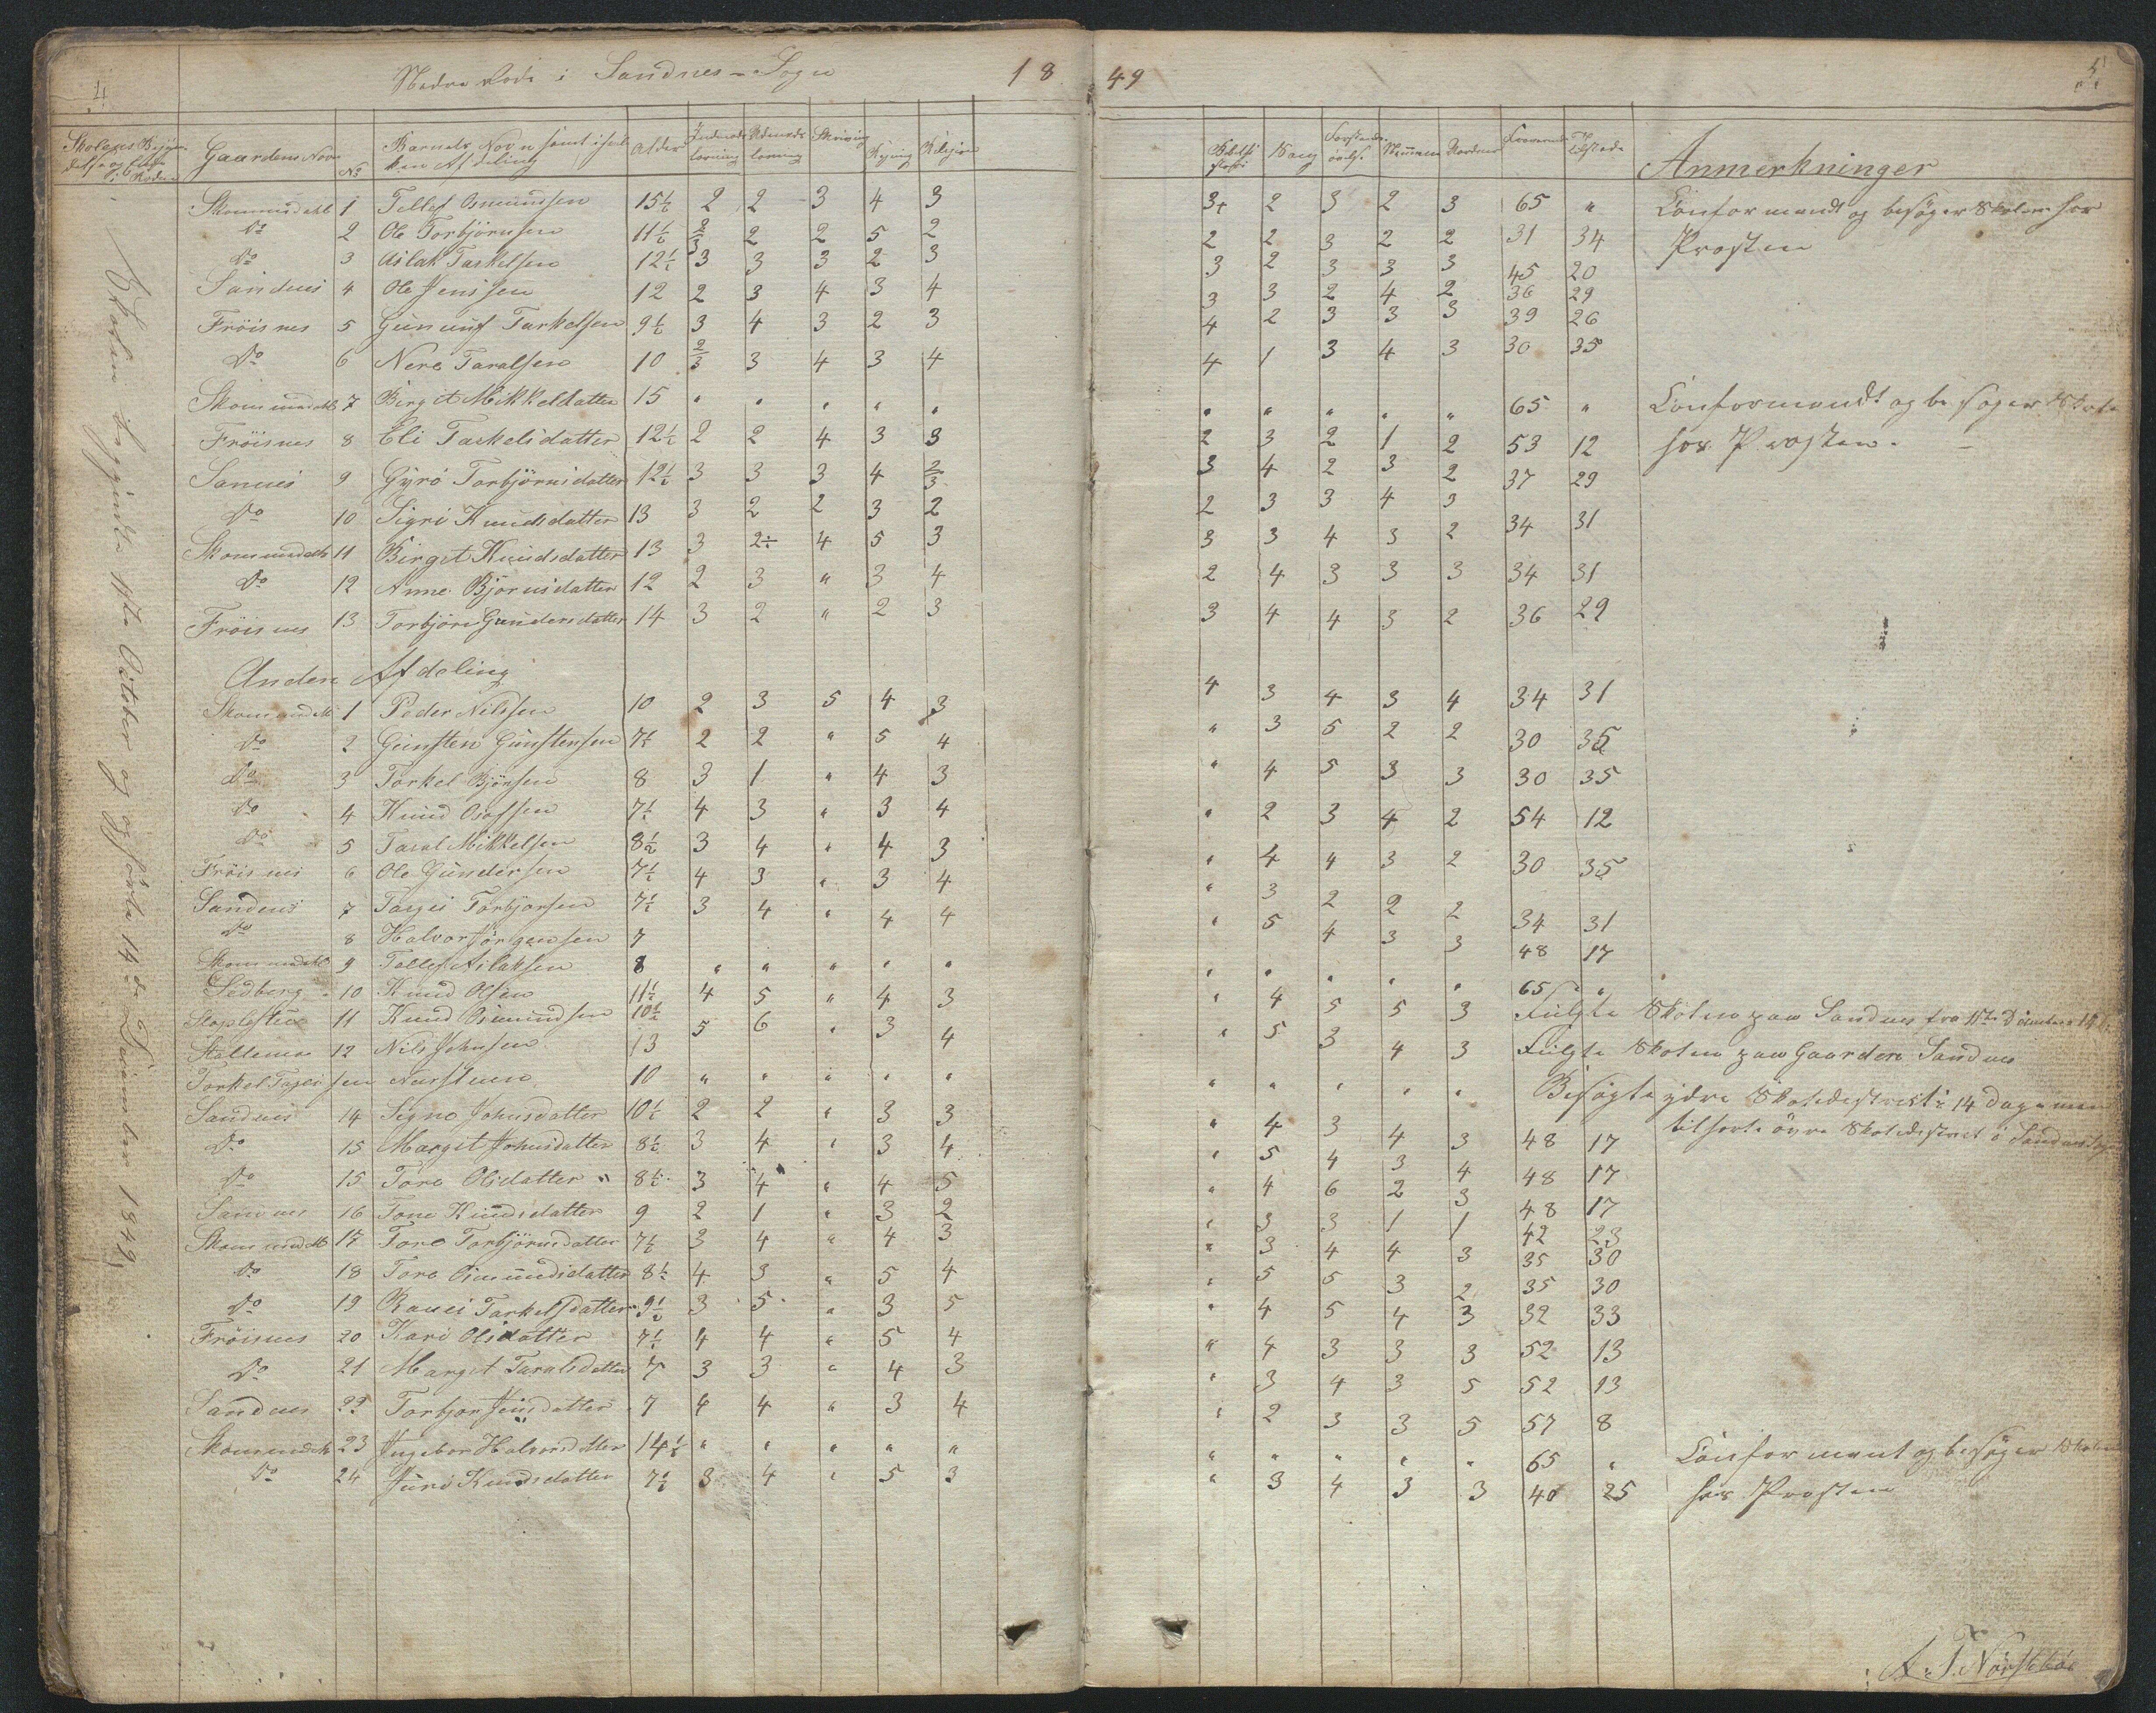 4
Nedre Rode i Sandnes-Sogn 18 49
5
Skolens Begyndelse og Ende i Roden
Gaardens Navn
No
Barnets Navn samt i hvilken Afdeling
Alder
Indenads læsning
Udenads læsning
Skrivning
Regning
Religion
Bibelhistorie
Sang
Forstandsøvelse
Nemme
Fraværende
Tilstede
Anmerkninger
Skolen begyndte 1ste October og ophørte 14de December 1849,
Skommedahl 1 Tellef Osmundsen 15½ 2 2 3 4 3 3+ 2 3 2 3 65 " Confirmandt og besøger Skolen hos
Do 2 Ole Torbjörnsen 11½ 2/3 2 2 5 2 2 2 3 2 2 31 34 Provsten
Do 3 Aslak Tarkelsen 12½ 3 3 3 2 3 3 2 3 3 3 45 20
Sandnes 4 Ole Jenssen 12 2 3 4 3 4 3 3 2 4 2 36 29
Fröisnes 5 Gunuuf Tarkelsen 9½ 3 4 3 2 3 4 2 3 3 3 39 26
Do 6 Nere Taralsen 10 2/3 3 4 3 4 4 1 3 4 3 30 35
Skommedahl 7 Birgit Mikkeldatter 15 " " " " " " " " " " 65 " Confirmandt og besøger Skole
Fröisnes 8 Eli Taskelsdatter 12½ 2 2 4 3 3 2 3 2 1 2 53 12 hos Provsten.
Sannes 9 Gyro Torbjörnsdatter 12½ 3 3 3 4 2/3 3 4 2 3 2 37 29
Do 10 Sigri Knudsdatter 13 3 2 2 3 2 2 3 3 4 3 34 31
Skommedahl 11 Birget Knudsdatter 13 3 2÷ 4 5 3 3 3 4 3 2
Do 12 Anne Björnsdatter 12 2 3 " 3 4 2 4 3 3 3 34 31
Fröisnes 13 Torbjör Gundersdatter 14 3 2 " 2 3 3 4 4 3 2 36 29
Anden Afdeling
Skommedahl 1 Peder Nilssen 10 2 3 5 4 3 4 3 4 3 4 34 31
Do 2 Gunsten Gunstensen 7½ 2 2 " 5 4 " 3 5 2 2 30 35
Do 3 Torkel Björsen 8 3 1 " 4 3 " 4 5 3 3 30 35
Do 4 Knud Olafsen 7½ 4 3 " 3 4 " 2 3 4 2 54 12
Do 5 Taral Mikkelsen 8½ 3 4 " 4 3 " 4 4 3 2 30 35
Fröisnes 6 Ole Gundersen 7½ 4 3 " 3 4 " 3 2 2 2 34 31
Sandnes 7 Targei Torbjorsen 7½ 3 4 " 4 4 " 5 4 3 3 48 17
Do 8 Halvor Jörgensen 7
Skommedahl 9 Tellef Aslaksen 8 " " " " " " " " " " 65 "
Sedberg 10 Knud Olsen 11½ 4 5 " 4 3 " 4 5 5 3 Fulgte Skolen paa Sandnes fra 11te December
11 Knud Osmundsen 10½ 5 6 " 3 4 " 5 3 4 3 Fulgte Skolen paa Gaarden Sandnes
12 Nils Johnsen 13
Torkel Tarjeisen Narstuen 10 " " " " " " " " " " Besøgte ydre Skoledistrict i 14 Dage men
Sandnes 14 Signe Johnsdatter 10½ 2 2 " 3 3 " 4 3 4 3 48 17 tilhørte öyre Skoledistrict i Sandnes Sogn
Do 15 Margit Johnsdatter 8½ 3 4 " 3 4 " 5 4 3 4 48 17
Do 15 Tore Olsdatter 8½ 3 4 " 4 5 " 4 6 2 3 48 17
Sannes 16 Tone Knudsdatter 9 2 1 " 3 2 " 3 3 1 1 42 23
Skommedahl 17 Tore Torbjörnsdatter 7½ 3 4 " 4 3 " 3 4 4 3 35 30
Do 18 Tore Osmundsdatter 8½ 4 3 " 5 4 " 5 5 3 2 35 30
Do 19 Ranei Tarkelsdatter 9½ 3 5 " 3 5 " 4 5 4 3 32 33
Fröisnes 20 Kari Olsdatter 7½ 4 4 " 5 4 " 4 3 3 3 52 13
Do 21 Marget Taralsdatter 7 3 3 " 4 3 " 3 4 3 5 52 13
Sandnes 22 Torbjor Jensdatter 7 4 4 " 3 4 " 2 3 3 5 57 8
Skommedahl 23 Ingebor Halvorsdatter 14½ " " " " " " " " " " 65 " Confirmant og besøger Skolen
Do 24 Juri Knudsdatter 7½ 3 4 " 5 3 " 3 4 3 3 40 25 hos Provsten
A. T. Nörstebö